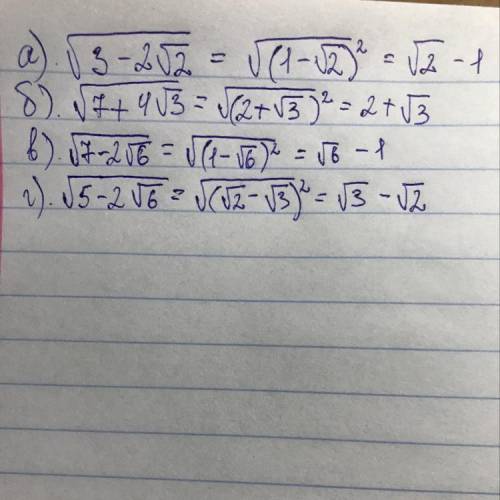 а). √(3 - 2√2) = √((1-√2)²) = √2 - 1
б). √(7 + 4√3) = √((2+√3)²) = 2 + √3
в). √(7 - 2√6) = √((1-√6)²) = √6 - 1
г). √(5 - 2√6) = √((√2-√3)²) = √3 - √2